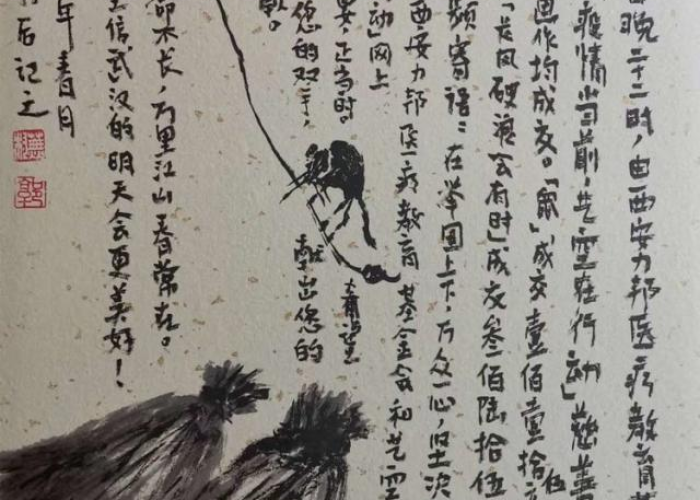 日晚二十二时，由西安力邦医疗教育
疫情当前，艺在行动」慈善
画作均成交。「鼠」成交壹佰壹拾伍
「长风破浪会有时」成交叁佰陆拾伍
频寄语：在举国上下，万众一心，坚决
西安力邦医疗教育基金会和艺
动」网上
要，正当时。
您的双手，献出您的
献。
命不长，万里江山春常在。
信武汉的明天会更美好！
年春月
后记之